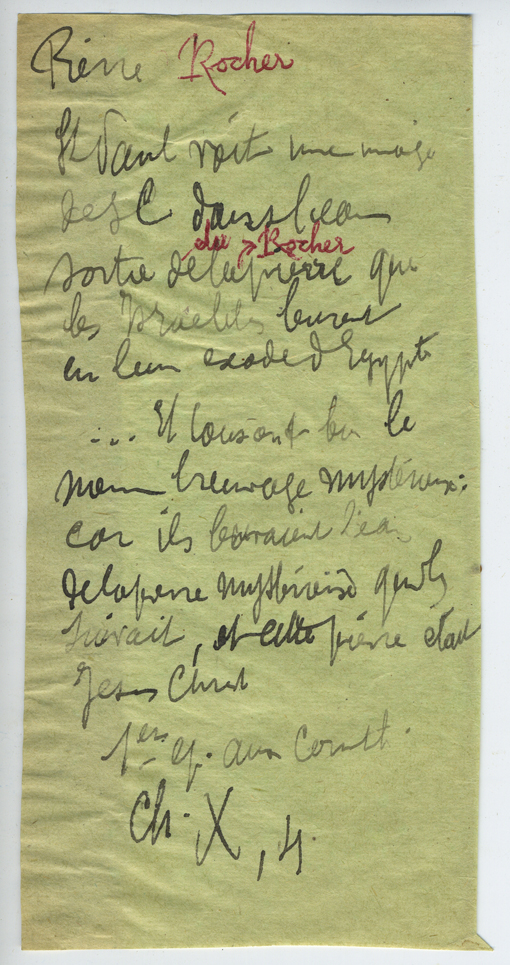 Pierre Rocher
St Paul voit une image
de J C dans l'eau
du Rocher
sortie de la pierre que
les Israelites burent
en leur exode d'Egypte
... Et tous ont bu le
meme breuvage mystérieux:
car ils buvaient l'eau
de la pierre mystérieuse qui les
suivait, et cette pierre etait
Jesus Christ
1ere ep. aux Corinth.
Ch. X, 4.